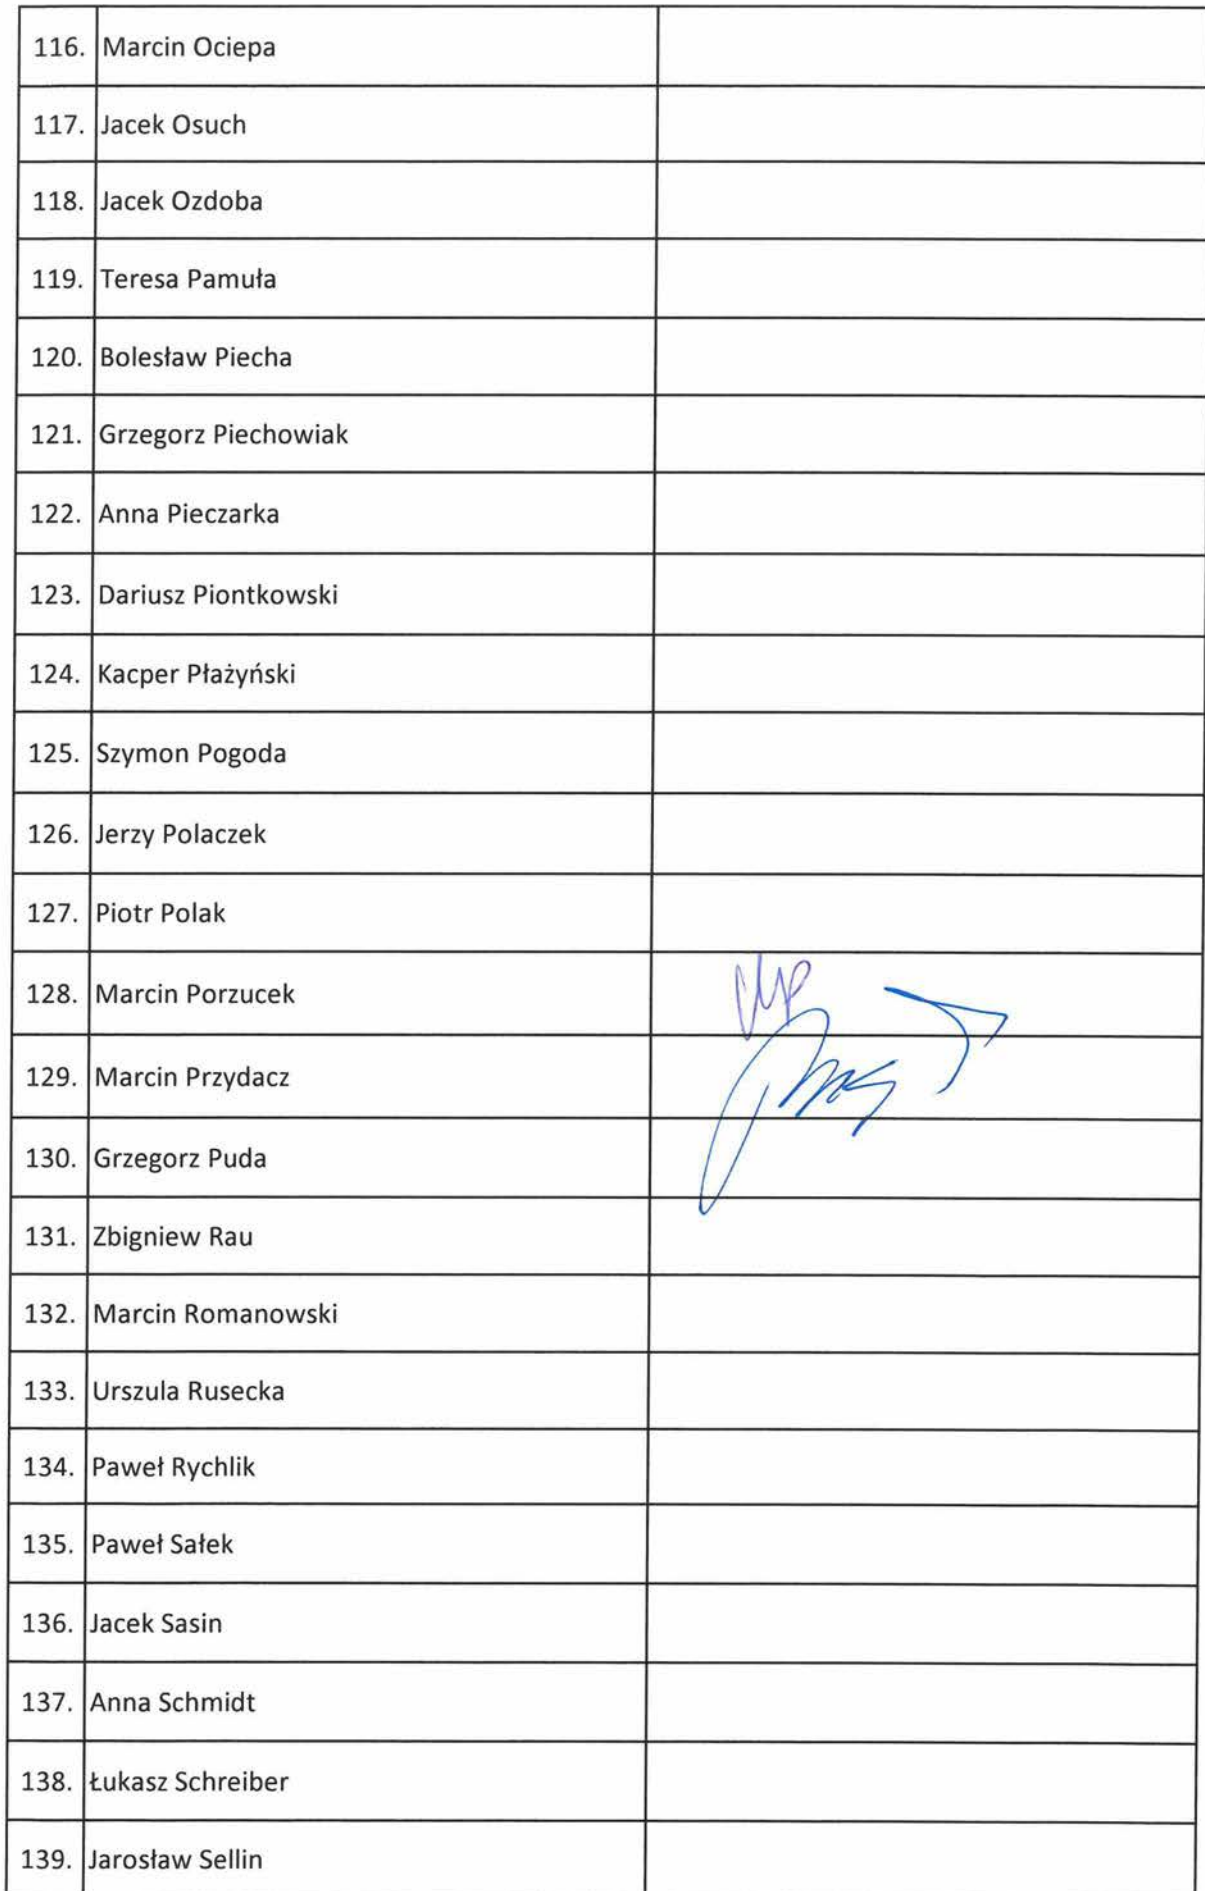 116. Marcin Ociepa
117. Jacek Osuch
118. Jacek Ozdoba
119. Teresa Pamuła
120. Bolesław Piecha
121. Grzegorz Piechowiak
122. Anna Pieczarka
123. Dariusz Piontkowski
124. Kacper Płażyński
125. Szymon Pogoda
126. Jerzy Polaczek
127. Piotr Polak
128. Marcin Porzucek
129. Marcin Przydacz
130. Grzegorz Puda
131. Zbigniew Rau
132. Marcin Romanowski
133. Urszula Rusecka
134. Paweł Rychlik
135. Paweł Sałek
136. Jacek Sasin
137. Anna Schmidt
138. Łukasz Schreiber
139. Jarosław Sellin